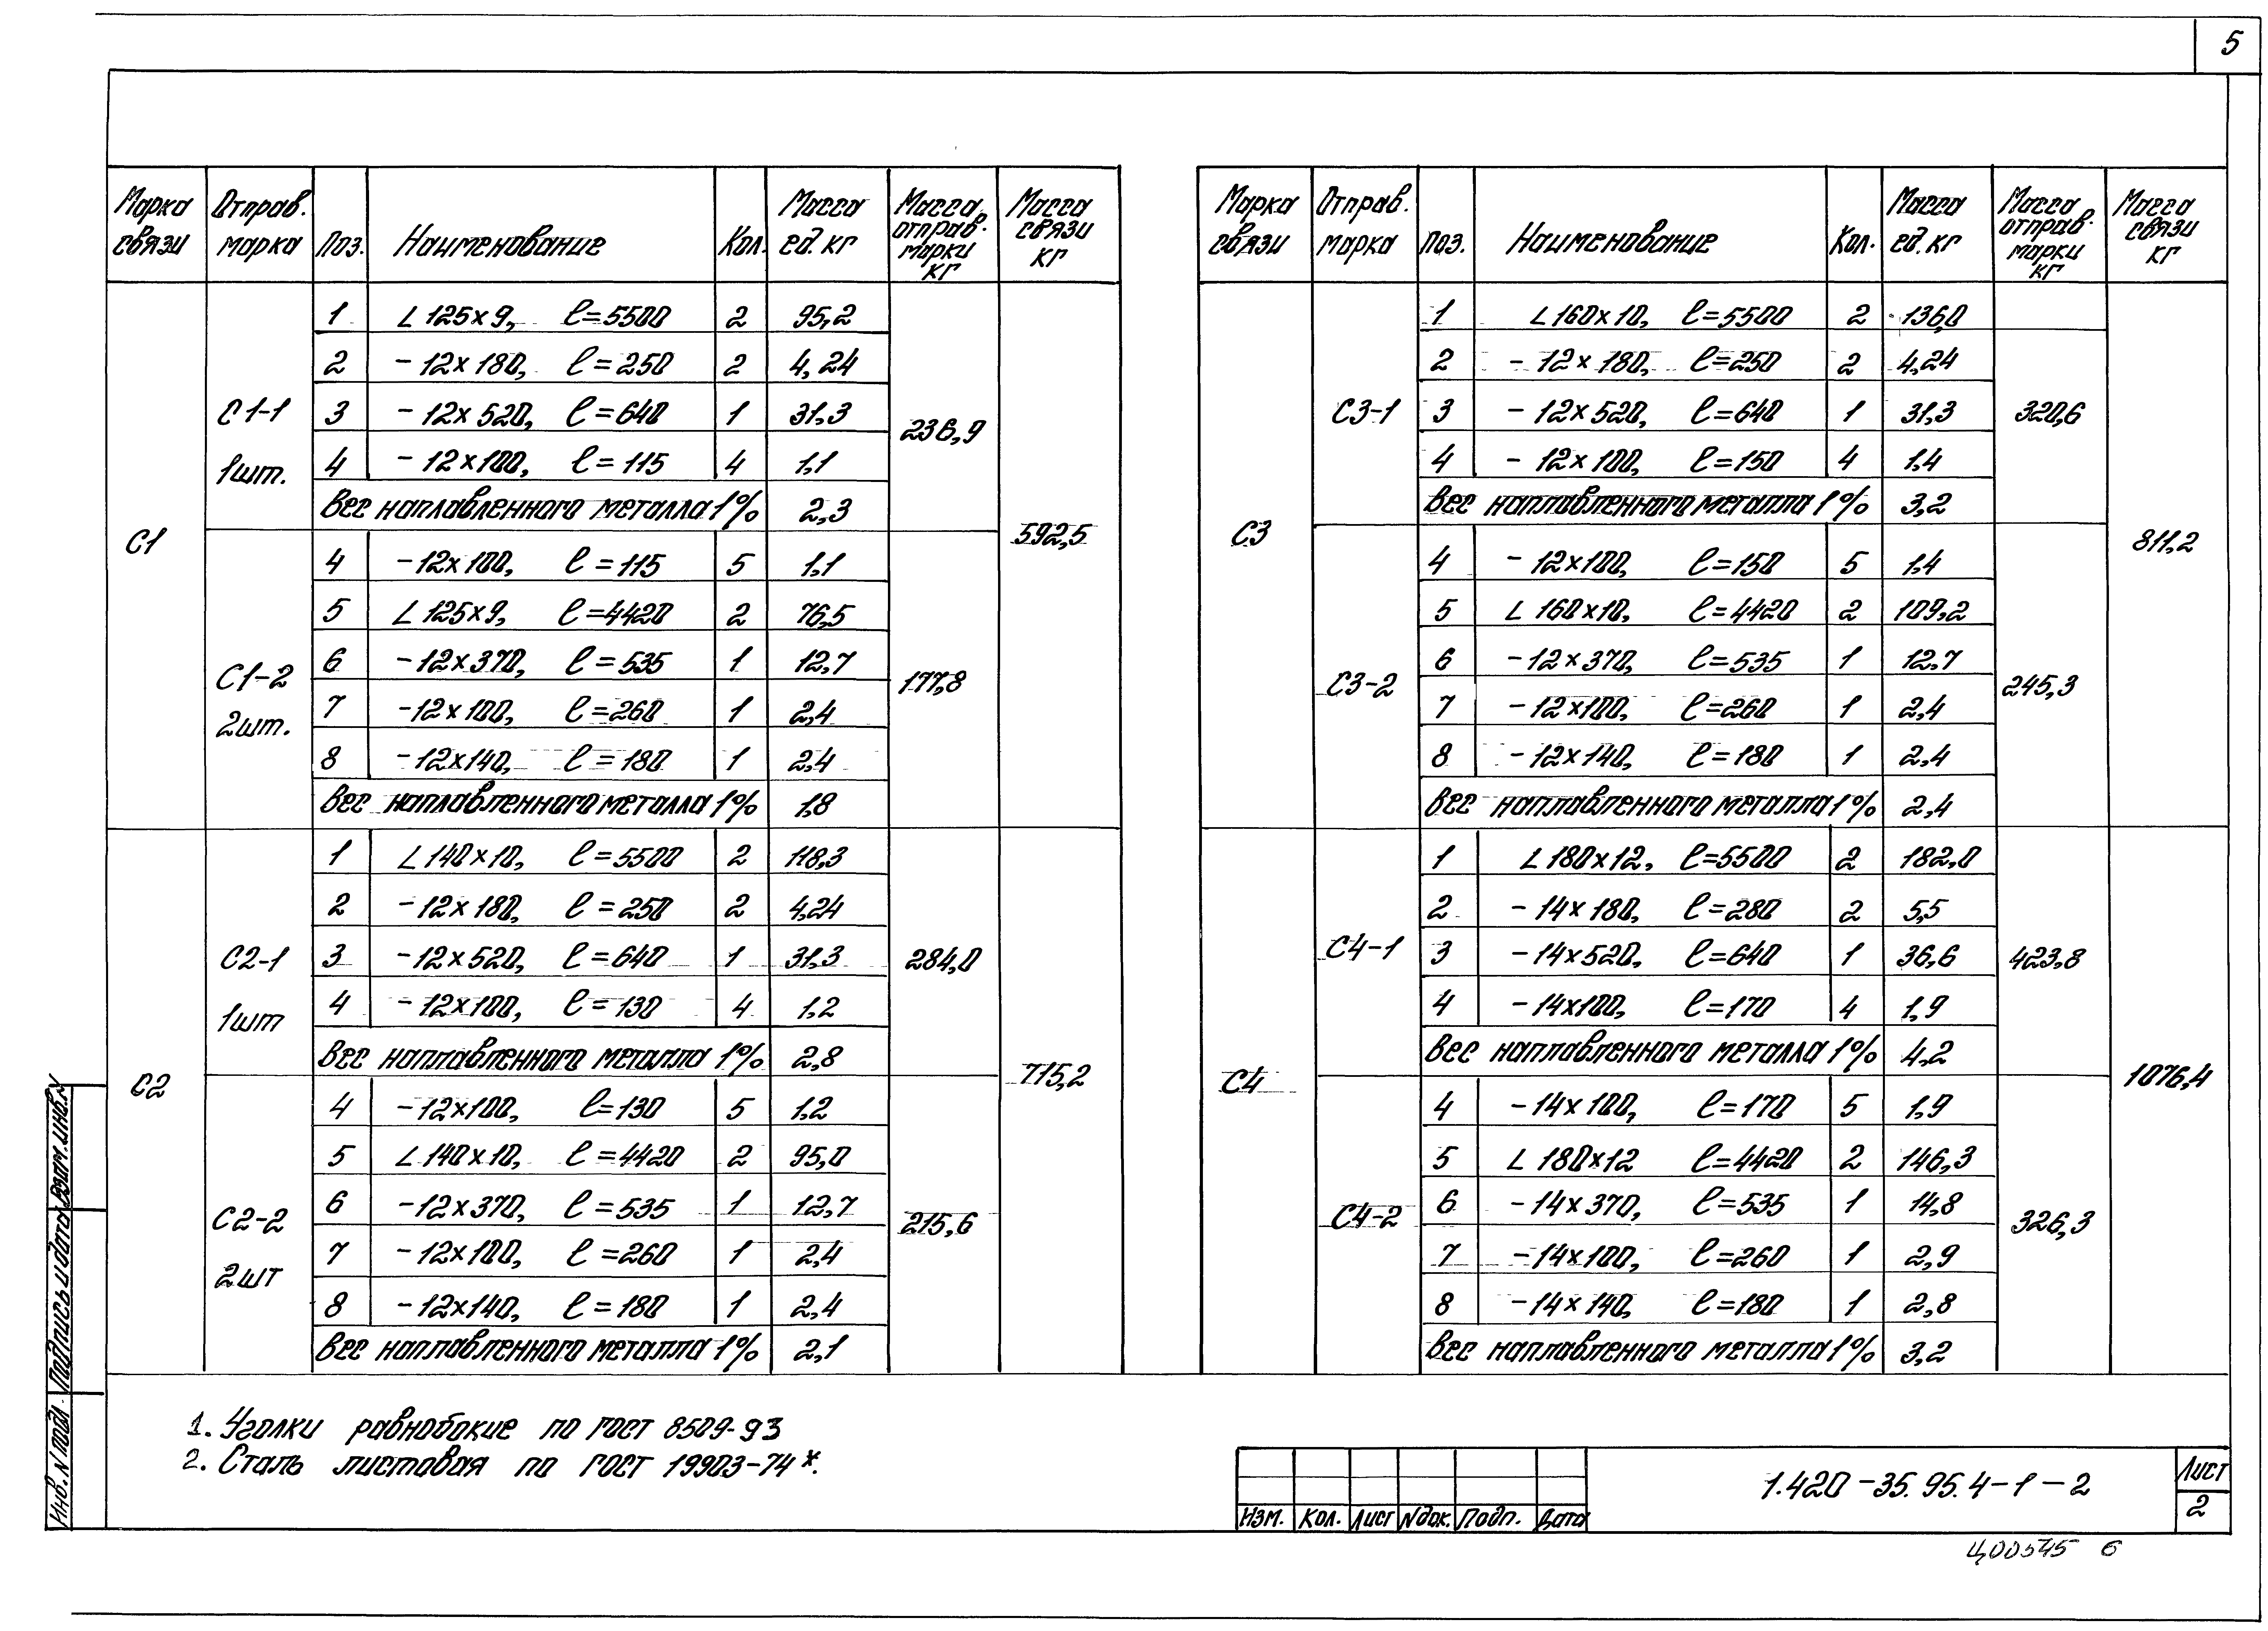 5
Марка связи | Отправ. марка | Поз. | Наименование | Кол. | Масса ед. кг | Масса отправ. марки кг | Масса связи кг
С1 | С1-1 1шт. | 1 | L 125×9, ℓ=5500 | 2 | 95,2 | 236,9 | 592,5
2 | - 12×180, ℓ=250 | 2 | 4,24
3 | - 12×520, ℓ=640 | 1 | 31,3
4 | - 12×100, ℓ=115 | 4 | 1,1
Вес наплавленного металла 1% | 2,3
С1-2 2шт. | 4 | -12×100, ℓ=115 | 5 | 1,1 | 177,8
5 | L 125×9, ℓ=4420 | 2 | 76,5
6 | -12×370, ℓ=535 | 1 | 12,7
7 | -12×100, ℓ=260 | 1 | 2,4
8 | -12×140, ℓ=180 | 1 | 2,4
Вес наплавленного металла 1% | 1,8
С2 | С2-1 1шт | 1 | L 140×10, ℓ=5500 | 2 | 118,3 | 284,0 | 715,2
2 | -12×180, ℓ=250 | 2 | 4,24
3 | -12×520, ℓ=640 | 1 | 31,3
4 | -12×100, ℓ=130 | 4 | 1,2
Вес наплавленного металла 1% | 2,8
С2-2 2шт | 4 | -12×100, ℓ=130 | 5 | 1,2 | 215,6
5 | L 140×10, ℓ=4420 | 2 | 95,0
6 | -12×370, ℓ=535 | 1 | 12,7
7 | -12×100, ℓ=260 | 1 | 2,4
8 | -12×140, ℓ=180 | 1 | 2,4
Вес наплавленного металла 1% | 2,1
Марка связи | Отправ. марка | Поз. | Наименование | Кол. | Масса ед. кг | Масса отправ. марки кг | Масса связи кг
С3 | С3-1 | 1 | L 160×10, ℓ=5500 | 2 | 136,0 | 320,6 | 811,2
2 | - 12×180, ℓ=250 | 2 | 4,24
3 | - 12×520, ℓ=640 | 1 | 31,3
4 | - 12×100, ℓ=150 | 4 | 1,4
Вес наплавленного металла 1% | 3,2
С3-2 | 4 | - 12×100, ℓ=150 | 5 | 1,4 | 245,3
5 | L 160×10, ℓ=4420 | 2 | 109,2
6 | -12×370, ℓ=535 | 1 | 12,7
7 | -12×100, ℓ=260 | 1 | 2,4
8 | -12×140, ℓ=180 | 1 | 2,4
Вес наплавленного металла 1% | 2,4
С4 | С4-1 | 1 | L 180×12, ℓ=5500 | 2 | 182,0 | 423,8 | 1076,4
2 | - 14×180, ℓ=280 | 2 | 5,5
3 | -14×520, ℓ=640 | 1 | 36,6
4 | -14×100, ℓ=170 | 4 | 1,9
Вес наплавленного металла 1% | 4,2
С4-2 | 4 | -14×100, ℓ=170 | 5 | 1,9 | 326,3
5 | L 180×12 ℓ=4420 | 2 | 146,3
6 | -14×370, ℓ=535 | 1 | 14,8
7 | -14×100, ℓ=260 | 1 | 2,9
8 | -14×140, ℓ=180 | 1 | 2,8
Вес наплавленного металла 1% | 3,2
1. Уголки равнобокие по ГОСТ 8509-93
2. Сталь листовая по ГОСТ 19903-74*.
Инв. N подл. Подпись и дата Взам. инв. N
Изм. Кол. Лист Nдок. Подп. Дата
1.420-35.95.4-1-2
Лист
2
Ц00545 6